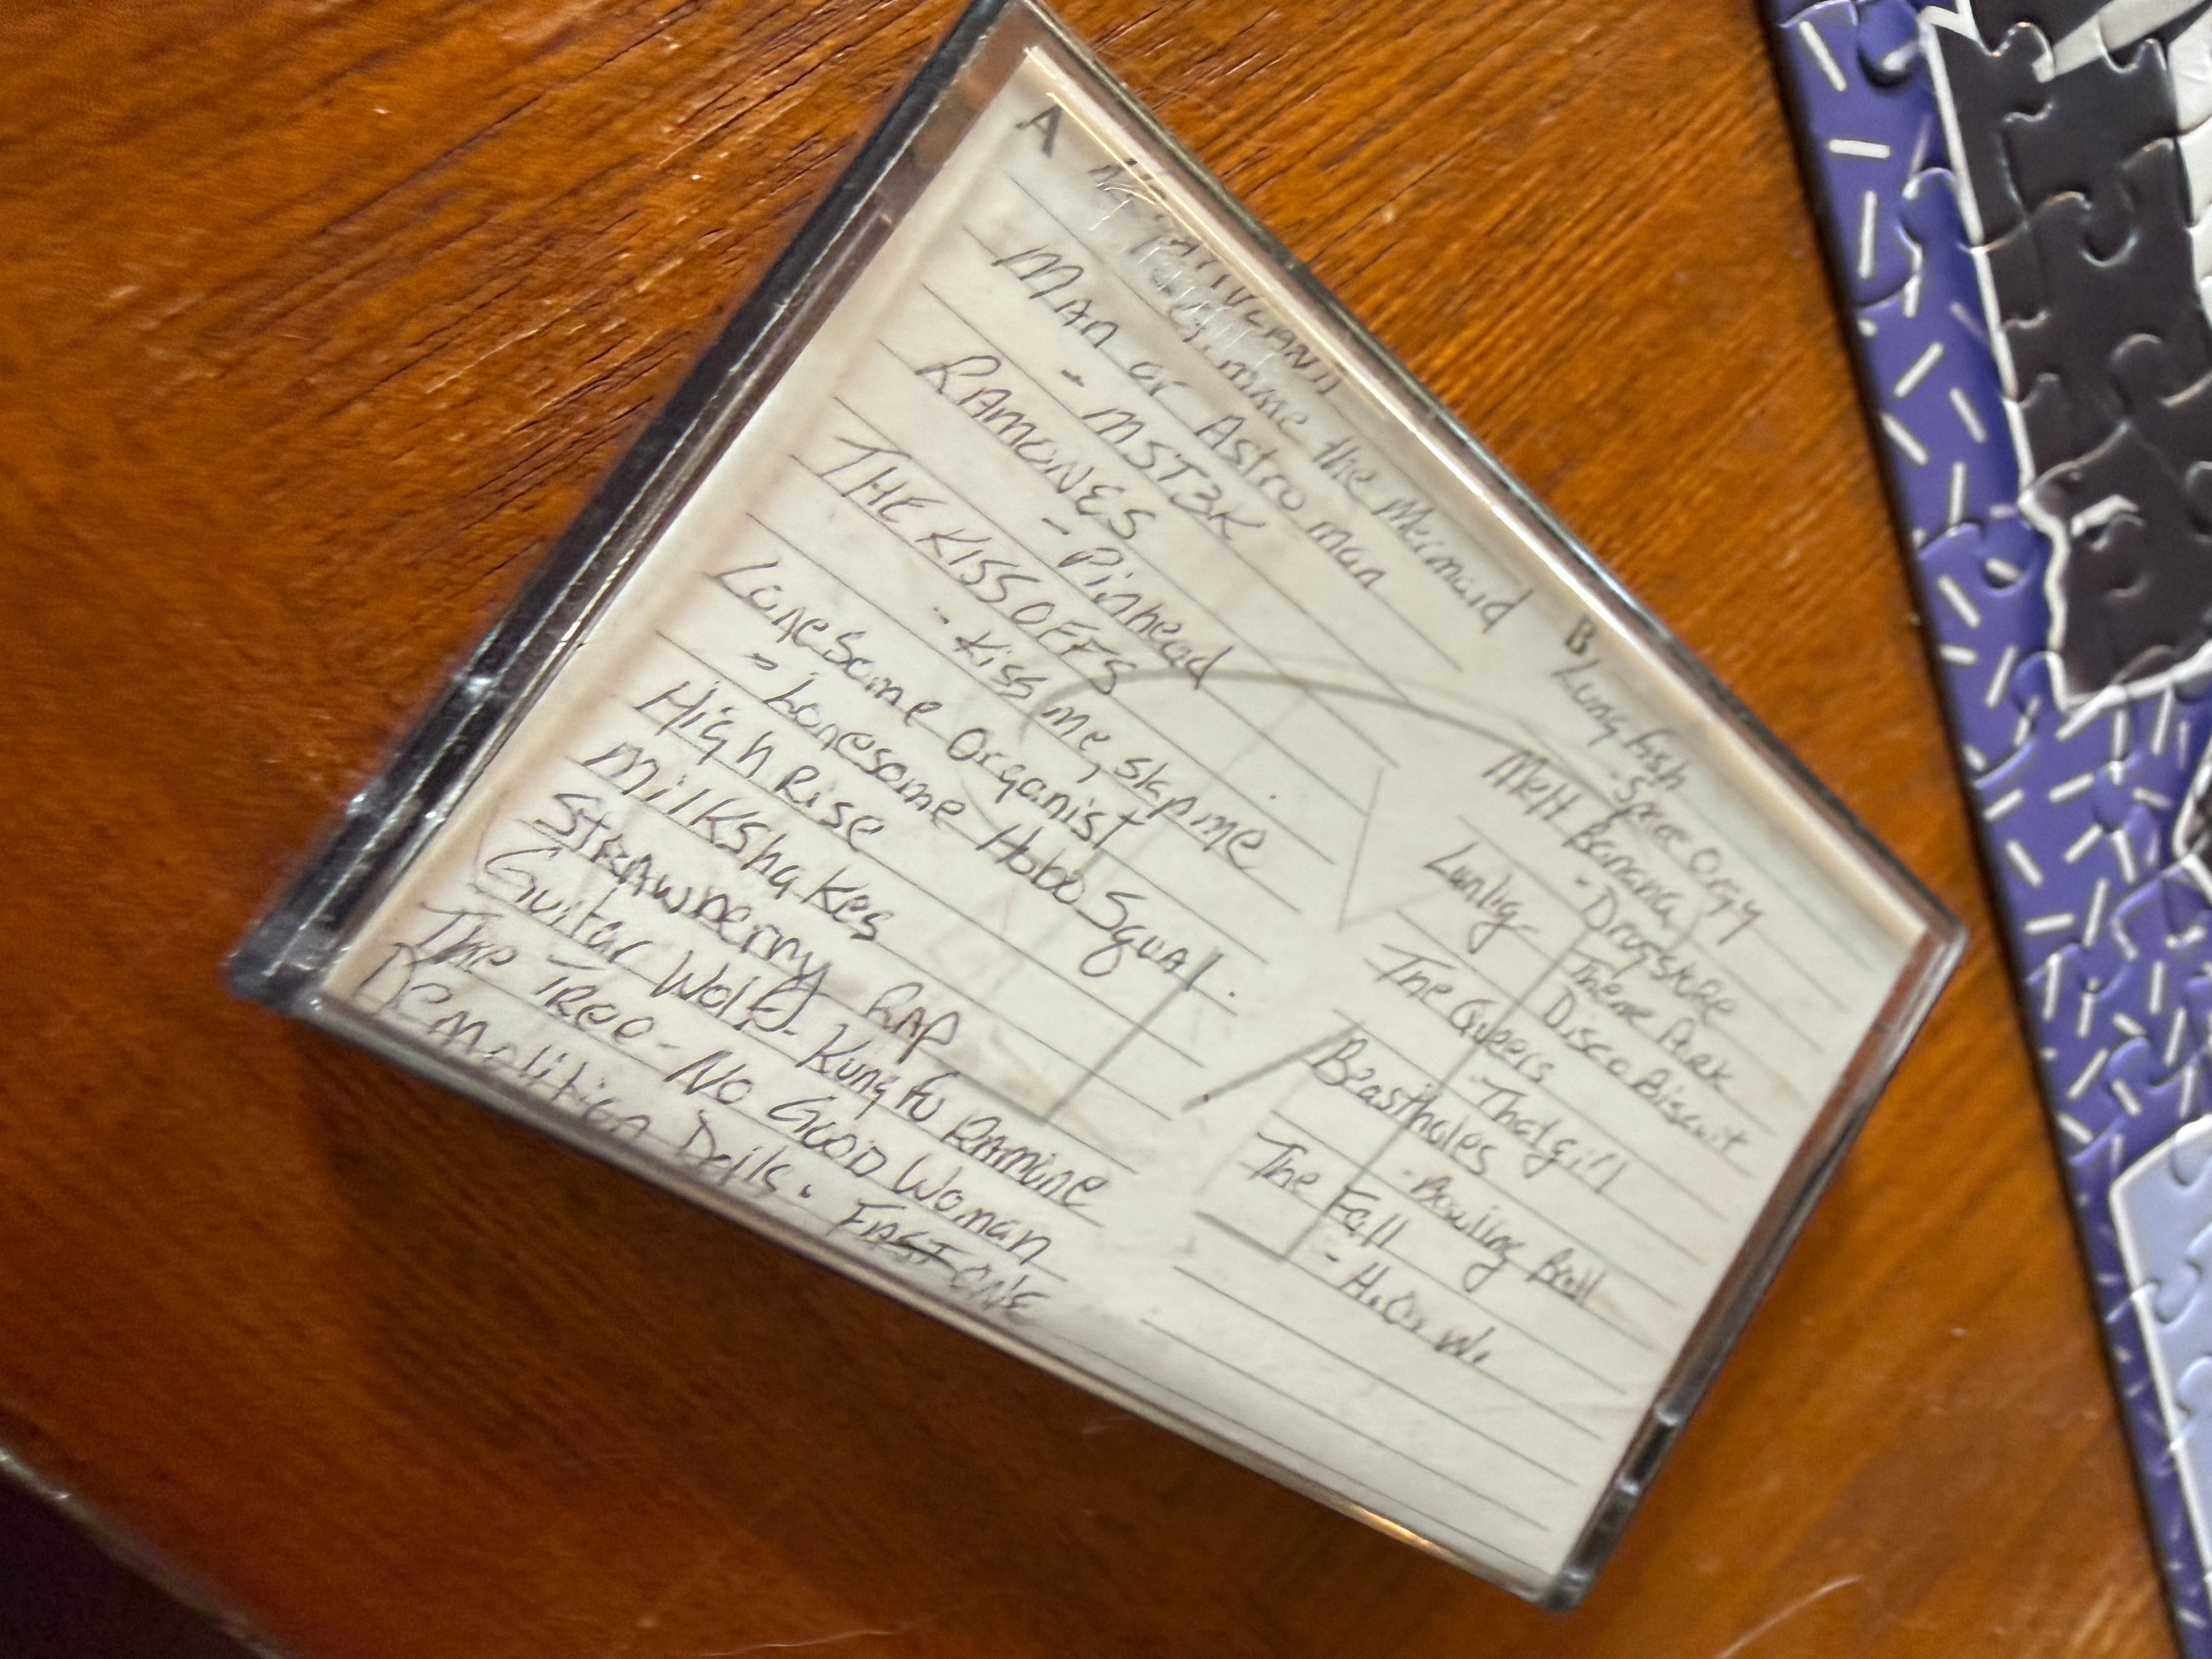 A
the Mermaid
Man or Astro man
- MST3K
RAMONES
- Pinhead
THE KISS OFFS
- Kiss me, slap me
Lonesome Organist
- Lonesome Hobo Squal.
High Rise
MilKshaKes
STRAWberry RAP
Guitar Wolf - Kung Fu RAMONE
The Treo - No GOOD Woman
Demolition Dolls. FAST ONE
B
Lungfish
- Space Orgy
Melt Banana
- Drugstore
- Theme Park
Disco Biscuit
The Queers
- That girl
Beastholes
- Bowling Ball
The Fall
- H.O. W.